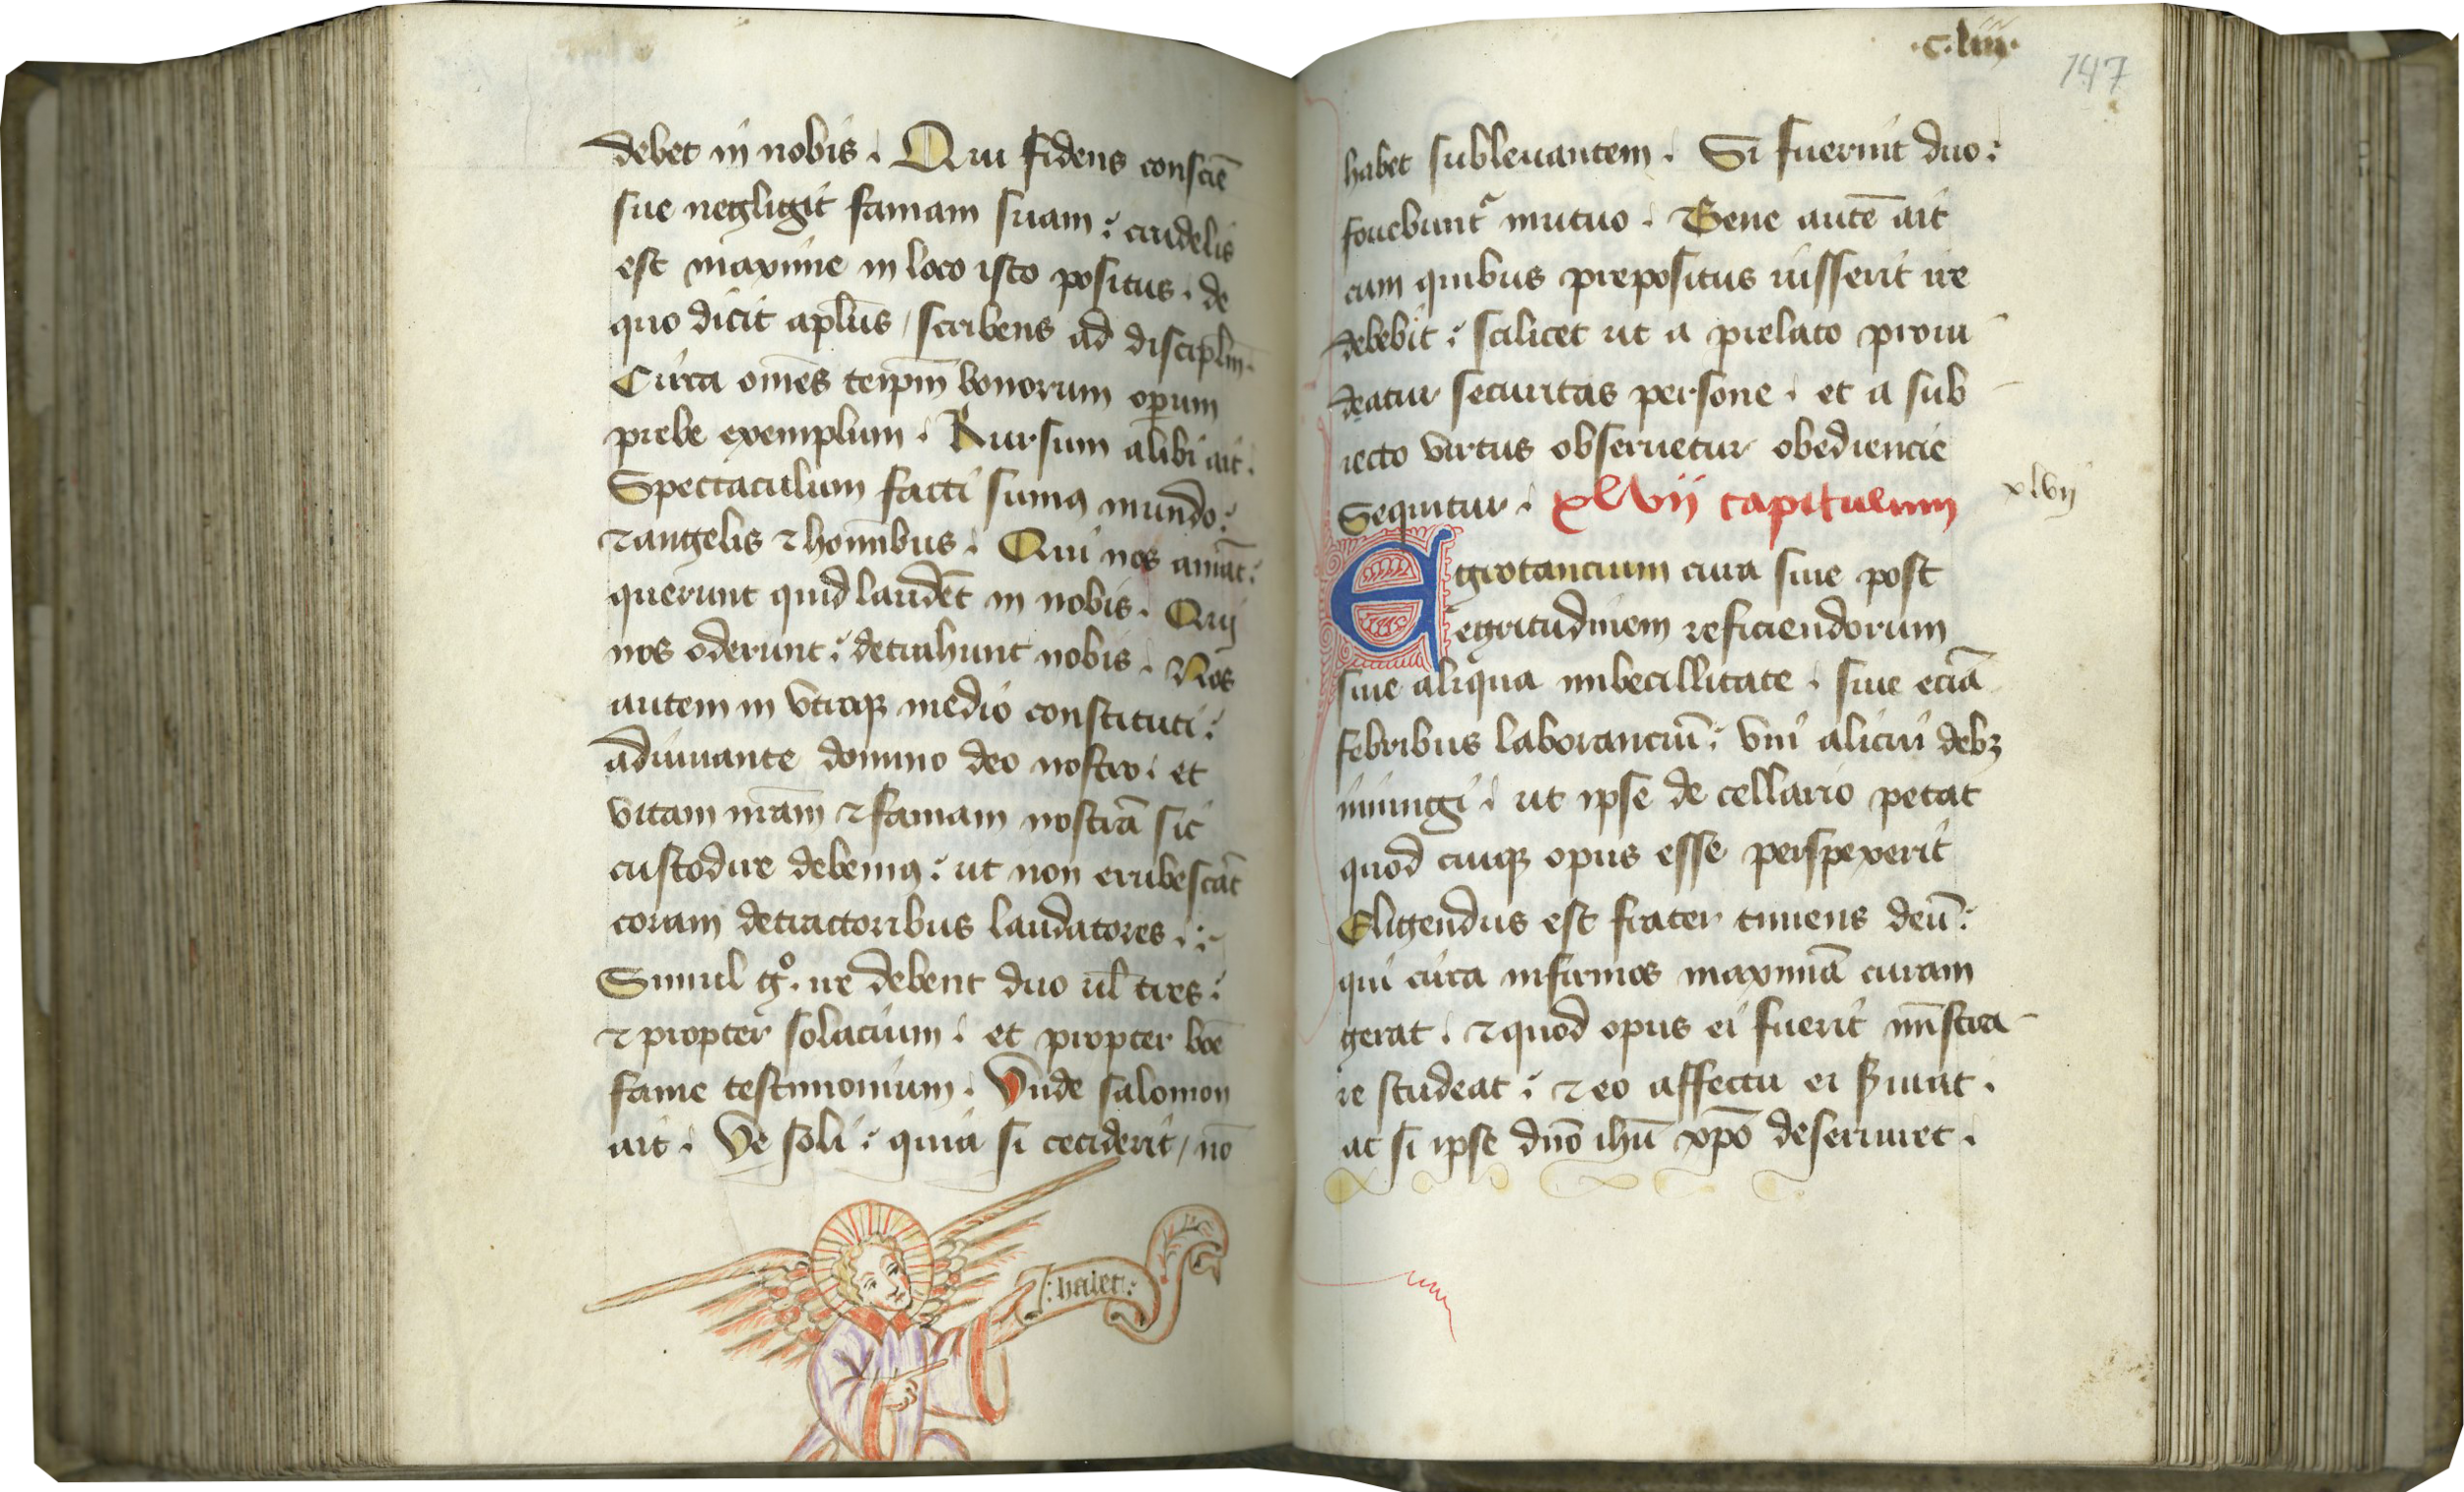 debet in nobis. Qui fidens consciē
sue negligit famam suam: crudelis
est maxime in loco isto positus. de
quo dicit apl̄us / scribens ad discipl̄m.
Circa om̄es teip̄m bonorum operum
prebe exemplum. Rursum alibi ait.
Spectaculum facti sumꝰ mundo:
⁊ angelis ⁊ homībus. Qui nos amāt:
querunt quid laudēt in nobis. Quij
nos oderunt: detrahunt nobis. Nos
autem in vtroqꝫ medio constituti:
adiuuante domino deo nostro. et
vitam nr̄am ⁊ famam nostrā sic
custodire debemꝰ: ut non erubescāt
coram detractoribus laudatores.:-
Simul gº. ire debent duo ul̄ tres:
⁊ propter solacium. et propter boē
fame testimonium. Vnde salomon
ait. Ve soli: quia si ceciderit / nō
:halet:
.c.liiij.
147
habet subleuantem. Si fuerint duo:
fouebuntᷣ mutuo. Bene autē ait
cum quibus prepositus iusserit ire
debebit: scilicet ut a prelato proui-
deatur securitas persone. et a sub-
iecto virtus obseruetur obediencie
Sequitur. xlvij capitulum
xlvij
Egrotancium cura siue post
egritudinem reficiendorum
siue aliqua imbecillitate. siue eciā
febribus laboranciū: vni alicui debꝫ
iniungi. ut ipse de cellario petat
quod cuiqꝫ opus esse perspexerit
Eligendus est frater timens deū:
qui circa infirmos maximā curam
gerat. ⁊ quod opus ei fuerit mīstra-
re studeat: ⁊ eo affectu ei ẜuiat.
ac si ipse dn̄o ihū xp̄o deseruiret.